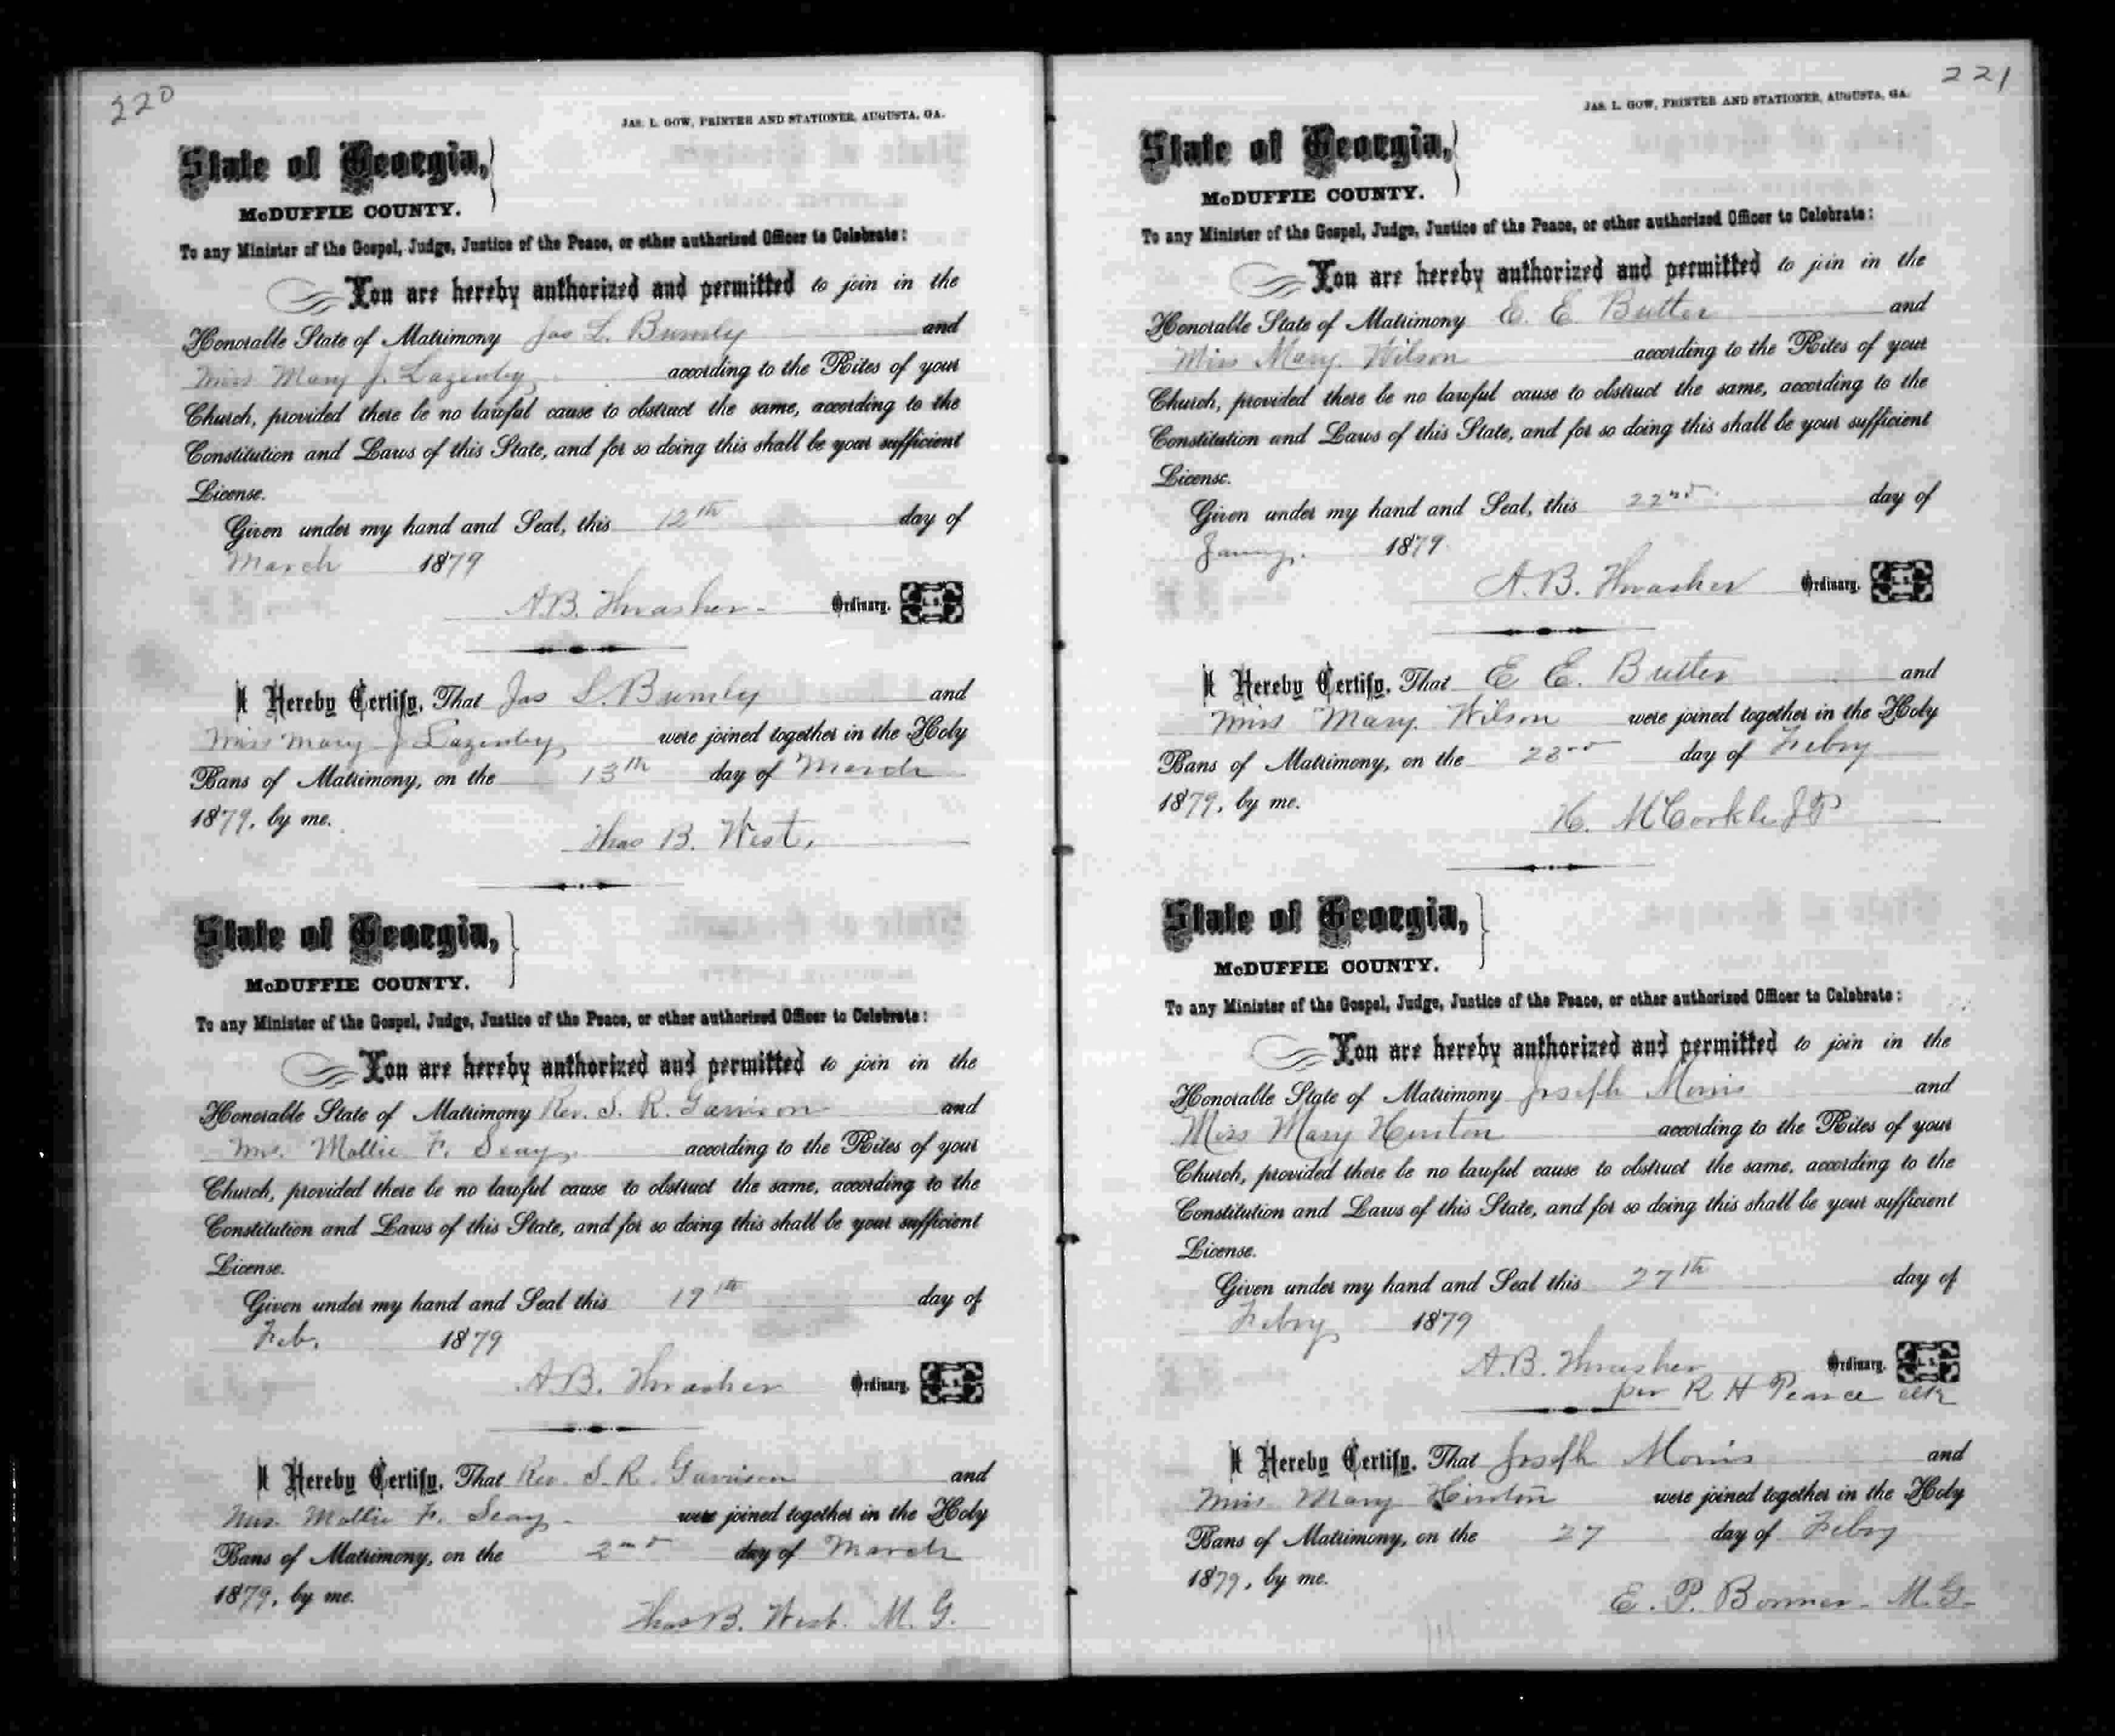 220
JAS. L. GOW, PRINTER AND STATIONER, AUGUSTA, GA.
State of Georgia,
McDUFFIE COUNTY.
To any Minister of the Gospel, Judge, Justice of the Peace, or other authorized Officer to Celebrate:
You are hereby authorized and permitted to join in the
Honorable State of Matrimony Jas L. Bumly and
Miss Mary J. Lazenby according to the Rites of your
Church, provided there be no lawful cause to obstruct the same, according to the
Constitution and Laws of this State, and for so doing this shall be your sufficient
License.
Given under my hand and Seal, this 12th day of
March 1879
A.B. Thrasher Ordinary. L.S.
I Hereby Certify, That Jas L. Bumly and
Miss Mary J Lazenby were joined together in the Holy
Bans of Matrimony, on the 13th day of March
1879, by me.
Thos B. West,
State of Georgia,
McDUFFIE COUNTY.
To any Minister of the Gospel, Judge, Justice of the Peace, or other authorized Officer to Celebrate:
You are hereby authorized and permitted to join in the
Honorable State of Matrimony Rev. S. R. Garrison and
Mrs. Mollie F. Seay according to the Rites of your
Church, provided there be no lawful cause to obstruct the same, according to the
Constitution and Laws of this State, and for so doing this shall be your sufficient
License.
Given under my hand and Seal this 19th day of
Feb. 1879
A.B. Thrasher Ordinary. L.S.
I Hereby Certify, That Rev. S. R. Garrison and
Mrs. Mollie F. Seay were joined together in the Holy
Bans of Matrimony, on the 2nd day of March
1879, by me.
Thos B. West. M. G.
221
JAS. L. GOW, PRINTER AND STATIONER, AUGUSTA, GA.
State of Georgia,
McDUFFIE COUNTY.
To any Minister of the Gospel, Judge, Justice of the Peace, or other authorized Officer to Celebrate:
You are hereby authorized and permitted to join in the
Honorable State of Matrimony E. E. Butler and
Miss Mary. Wilson according to the Rites of your
Church, provided there be no lawful cause to obstruct the same, according to the
Constitution and Laws of this State, and for so doing this shall be your sufficient
License.
Given under my hand and Seal, this 22nd day of
Janry. 1879.
A.B. Thrasher Ordinary. L.S.
I Hereby Certify, That E E. Butler and
Miss Mary. Wilson were joined together in the Holy
Bans of Matrimony, on the 23rd day of Febry
1879, by me.
H. McCorkle J P
State of Georgia,
McDUFFIE COUNTY.
To any Minister of the Gospel, Judge, Justice of the Peace, or other authorized Officer to Celebrate:
You are hereby authorized and permitted to join in the
Honorable State of Matrimony Joseph Morris and
Miss Mary Hinton according to the Rites of your
Church, provided there be no lawful cause to obstruct the same, according to the
Constitution and Laws of this State, and for so doing this shall be your sufficient
License.
Given under my hand and Seal this 27th day of
Febry 1879
A.B. Thrasher Ordinary. L.S.
per R H Pearce clk
I Hereby Certify, That Joseph Morris and
Miss Mary Hinton were joined together in the Holy
Bans of Matrimony, on the 27 day of Febry
1879, by me.
E. P. Bonner. M.G.